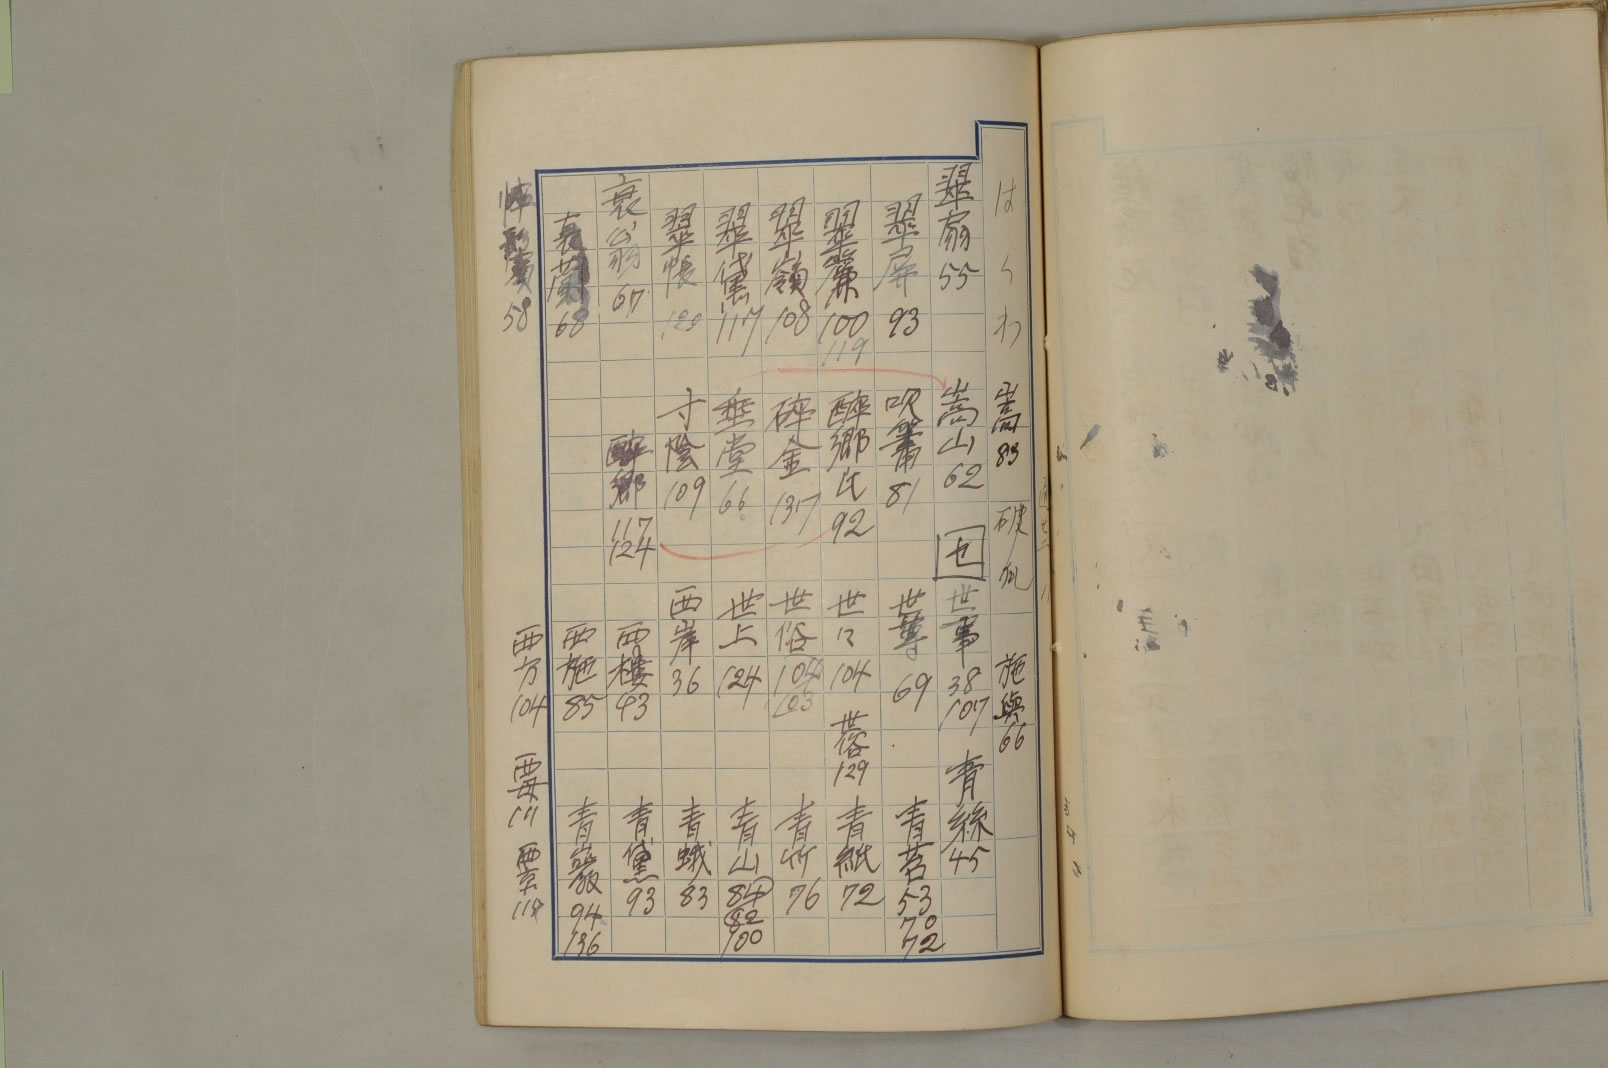 はくわ
嵩 83
破瓜
施與 66
翠扇 55
嵩山 62
セ
世事 38 107
青絲 45
翠屏 93
吹簫 81
世尊 69
青苔 53 70 72
翠簾 100 119
醉郷氏 92
世々 104
世蓉 129
青紙 72
翠嶺 108
碎金 137
世俗 104 103
青竹 76
翠黛 117
垂堂 66
世上 124
青山 84 82 100
翠帳 120
寸陰 109
西岸 36
青蛾 83
衰翁 67
醉郷 117 124
西樓 93
青黛 93
衰蘭 68
西施 85
青巖 94 136
58
西方 104
西母 111
118